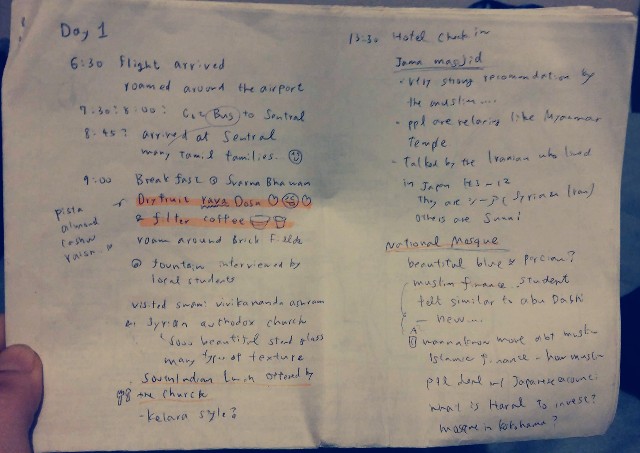 Day 1
6:30 flight arrived
roamed around the airport
7:30? 8:00? Bus to Sentral
8:45? arrived at Sentral
many Tamil families
9:00 Breakfast @ Svarna Bhawan
Dryfruit rava Dosa
& filter coffee
pista
almond
cashw
roam around Brick Fields
@ fountain interviewed by
local students
visited swami vivikananda ashram
Syrian authodox church
sooo beautiful glass
many type of texture
SouthIndian Lunch offered by
the church
- Kelara style?
13:30 Hotel Check in
Jama masjid
- very strong recommendation by
the muslim....
- ppl are relaxing like Myanmar
Temple
- Talked by the Iranian who lived
in Japan H3-12
They are シーア (Syrian (Iran)
others are Sunni
National Mosque
beautiful blue & persian?
muslim finance student
felt similar to abu Dabhi
- new....
wannaknow more abt muslim
Islamic finance - how muslim
ppl deal w/ Japanese account
what is Haral to invest?
mosque in Yokohama?